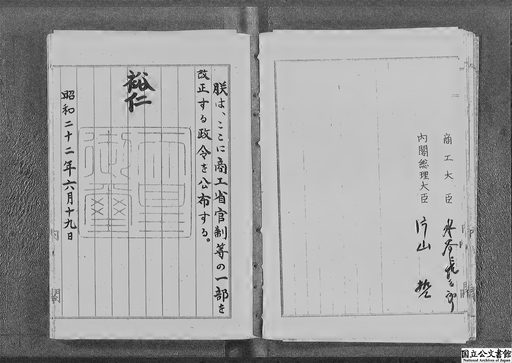 朕は、ここに商工省官制等の一部を
改正する政令を公布する。
裕仁
天皇
御璽
昭和二十二年六月十九日
内閣
商工大臣
内閣総理大臣 片山哲
内閣
国立公文書館
National Archives of Japan